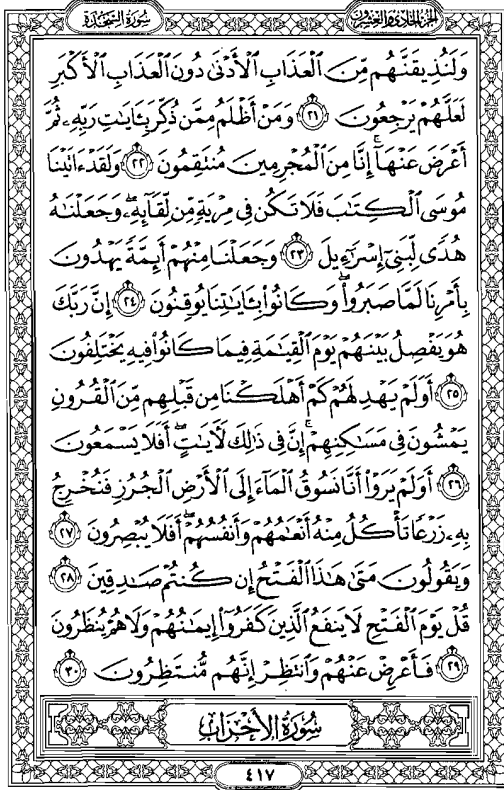 الجزء الحادي والعشرون
سورة السجدة
وَلَنُذِيقَنَّهُم مِّنَ ٱلْعَذَابِ ٱلْأَدْنَىٰ دُونَ ٱلْعَذَابِ ٱلْأَكْبَرِ
لَعَلَّهُمْ يَرْجِعُونَ ٢١ وَمَنْ أَظْلَمُ مِمَّن ذُكِّرَ بِـَٔايَٰتِ رَبِّهِۦ ثُمَّ
أَعْرَضَ عَنْهَآ ۚ إِنَّا مِنَ ٱلْمُجْرِمِينَ مُنتَقِمُونَ ٢٢ وَلَقَدْ ءَاتَيْنَا
مُوسَى ٱلْكِتَٰبَ فَلَا تَكُن فِى مِرْيَةٍ مِّن لِّقَآئِهِۦ ۖ وَجَعَلْنَٰهُ
هُدًى لِّبَنِىٓ إِسْرَٰٓءِيلَ ٢٣ وَجَعَلْنَا مِنْهُمْ أَئِمَّةً يَهْدُونَ
بِأَمْرِنَا لَمَّا صَبَرُوا۟ ۖ وَكَانُوا۟ بِـَٔايَٰتِنَا يُوقِنُونَ ٢٤ إِنَّ رَبَّكَ
هُوَ يَفْصِلُ بَيْنَهُمْ يَوْمَ ٱلْقِيَٰمَةِ فِيمَا كَانُوا۟ فِيهِ يَخْتَلِفُونَ
٢٥ أَوَلَمْ يَهْدِ لَهُمْ كَمْ أَهْلَكْنَا مِن قَبْلِهِم مِّنَ ٱلْقُرُونِ
يَمْشُونَ فِى مَسَٰكِنِهِمْ ۚ إِنَّ فِى ذَٰلِكَ لَـَٔايَٰتٍ ۖ أَفَلَا يَسْمَعُونَ
٢٦ أَوَلَمْ يَرَوْا۟ أَنَّا نَسُوقُ ٱلْمَآءَ إِلَى ٱلْأَرْضِ ٱلْجُرُزِ فَنُخْرِجُ
بِهِۦ زَرْعًا تَأْكُلُ مِنْهُ أَنْعَٰمُهُمْ وَأَنفُسُهُمْ ۖ أَفَلَا يُبْصِرُونَ ٢٧
وَيَقُولُونَ مَتَىٰ هَٰذَا ٱلْفَتْحُ إِن كُنتُمْ صَٰدِقِينَ ٢٨
قُلْ يَوْمَ ٱلْفَتْحِ لَا يَنفَعُ ٱلَّذِينَ كَفَرُوٓا۟ إِيمَٰنُهُمْ وَلَا هُمْ يُنظَرُونَ
٢٩ فَأَعْرِضْ عَنْهُمْ وَٱنتَظِرْ إِنَّهُم مُّنتَظِرُونَ ٣٠
سُورَةُ الأَحْزَاب
٤١٧